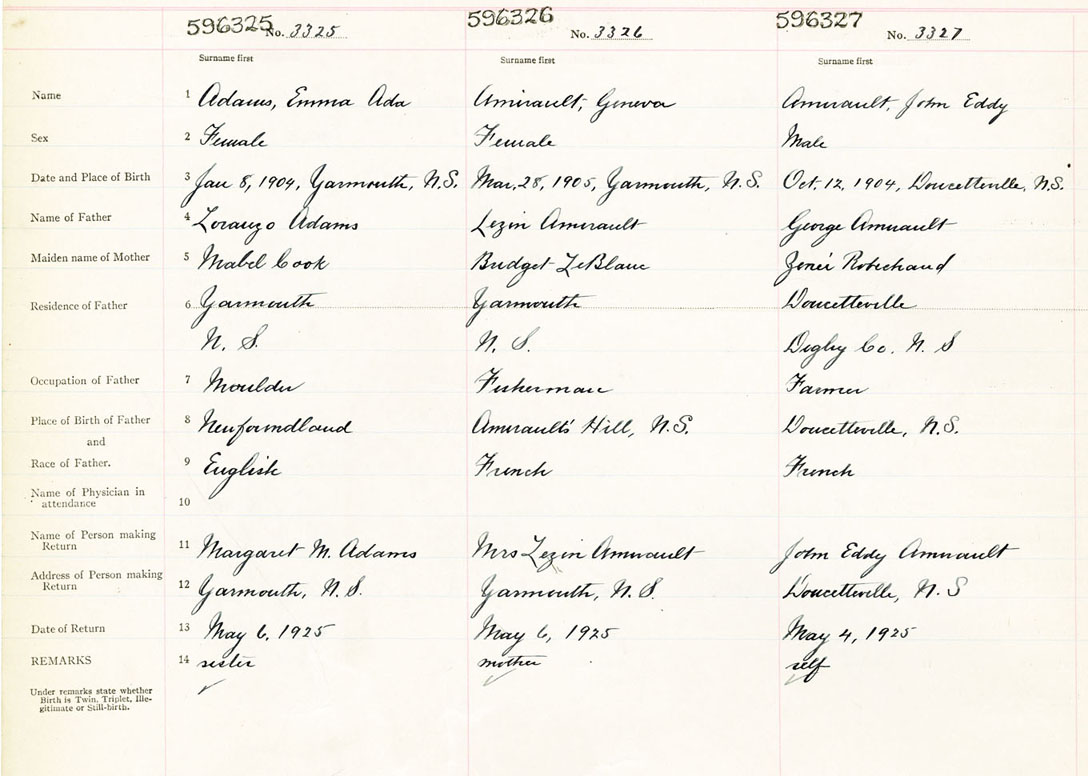 596325 No. 3325 596326 No. 3326 596327 No. 3327
Surname first Surname first Surname first
Name 1 Adams, Emma Ada Amirault, Geneva Amirault, John Eddy
Sex 2 Female Female Male
Date and Place of Birth 3 Jan 8, 1904, Yarmouth, N.S. Mar. 28, 1905, Yarmouth, N.S. Oct. 12, 1904, Doucetteville, N.S.
Name of Father 4 Loranzo Adams Lezin Amirault George Amirault
Maiden name of Mother 5 Mabel Cook Bridget LeBlanc Robichaud
Residence of Father 6 Yarmouth Yarmouth Doucetteville
N. S. N. S. Digby Co. N. S
Occupation of Father 7 Moulder Fisherman Farmer
Place of Birth of Father 8 Newfoundland Amirault's Hill, N.S. Doucetteville, N.S.
and
Race of Father. 9 English French French
Name of Physician in
attendance 10
Name of Person making
Return 11 Margaret M. Adams Mrs Lezin Amirault John Eddy Amirault
Address of Person making
Return 12 Yarmouth, N. S. Yarmouth, N. S. Doucetteville, N. S
Date of Return 13 May 6, 1925 May 6, 1925 May 4, 1925
REMARKS 14 sister mother self
Under remarks state whether
Birth is Twin, Triplet, Ille-
gitimate or Still-birth.